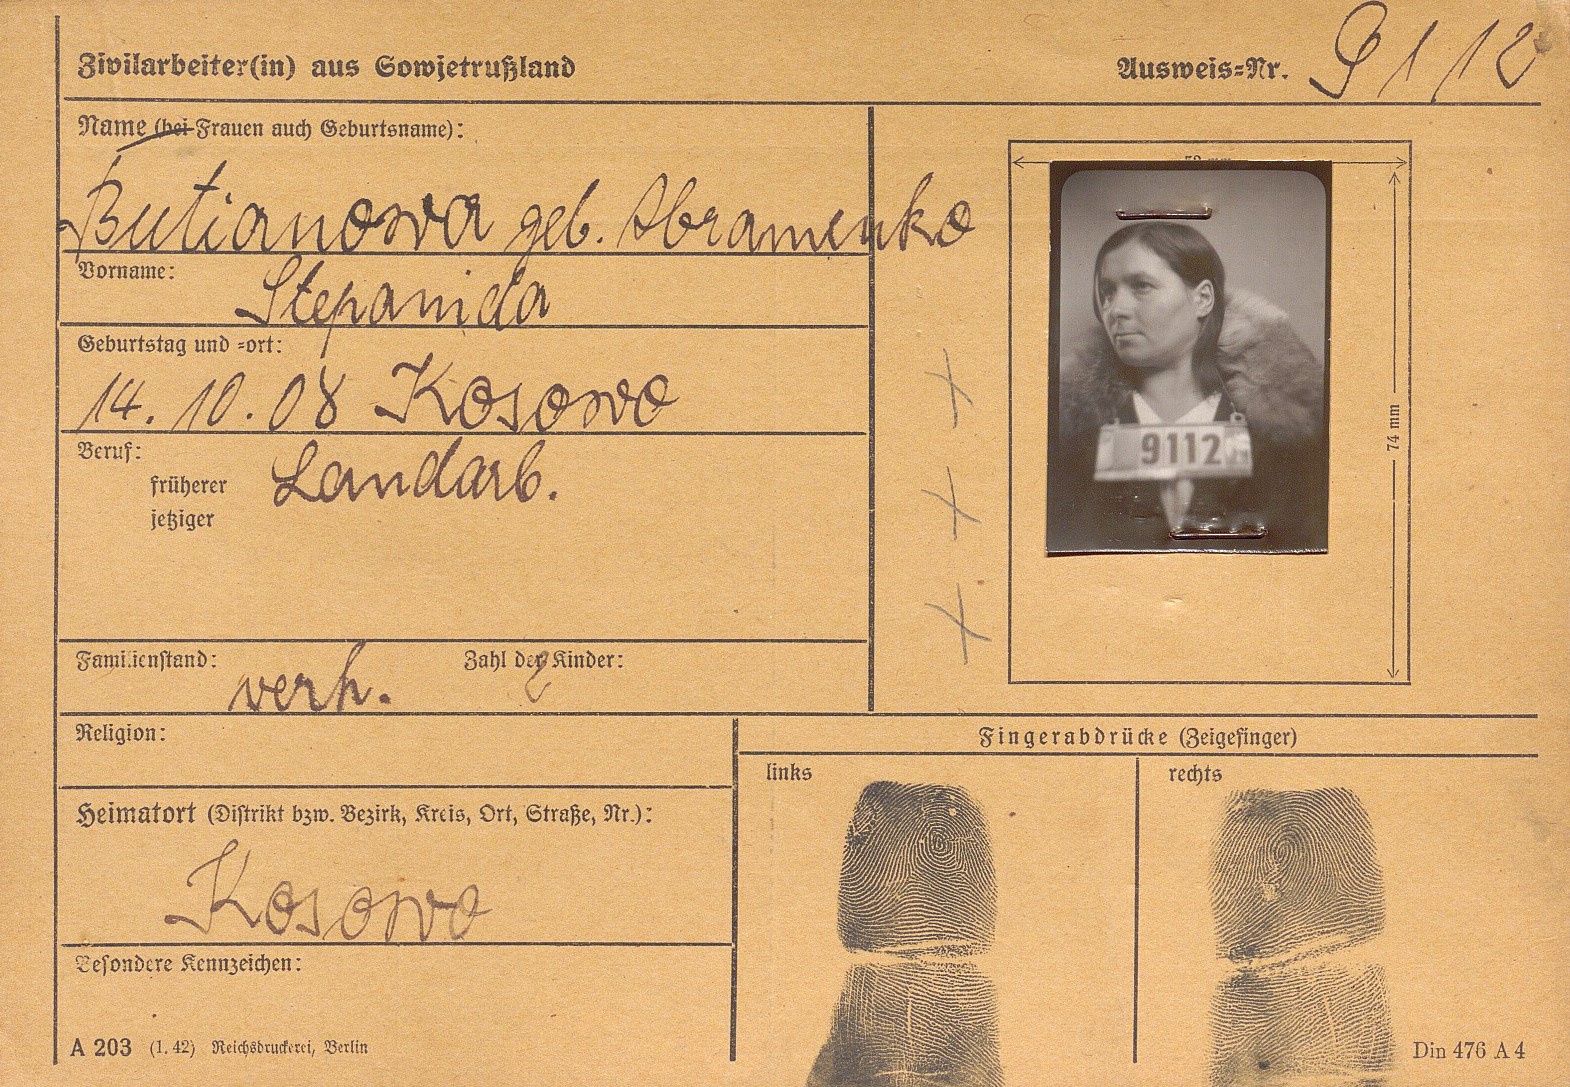 Zivilarbeiter(in) aus Sowjetrußland
Ausweis=Nr. 9112
Name (bei Frauen auch Geburtsname):
Butianowa geb. Abramenko
Vorname:
Stepanida
Geburtstag und =ort:
14. 10. 08 Kosowo
Beruf:
früherer Landarb.
jetziger
Familienstand: verh.
Zahl der Kinder:
Religion:
Heimatort (Distrikt bzw. Bezirk, Kreis, Ort, Straße, Nr.):
Kosowo
Besondere Kennzeichen:
A 203 (1. 42) Reichsdruckerei, Berlin
52 mm
9112
74 mm
+
+
+
Fingerabdrücke (Zeigefinger)
links
rechts
Din 476 A 4